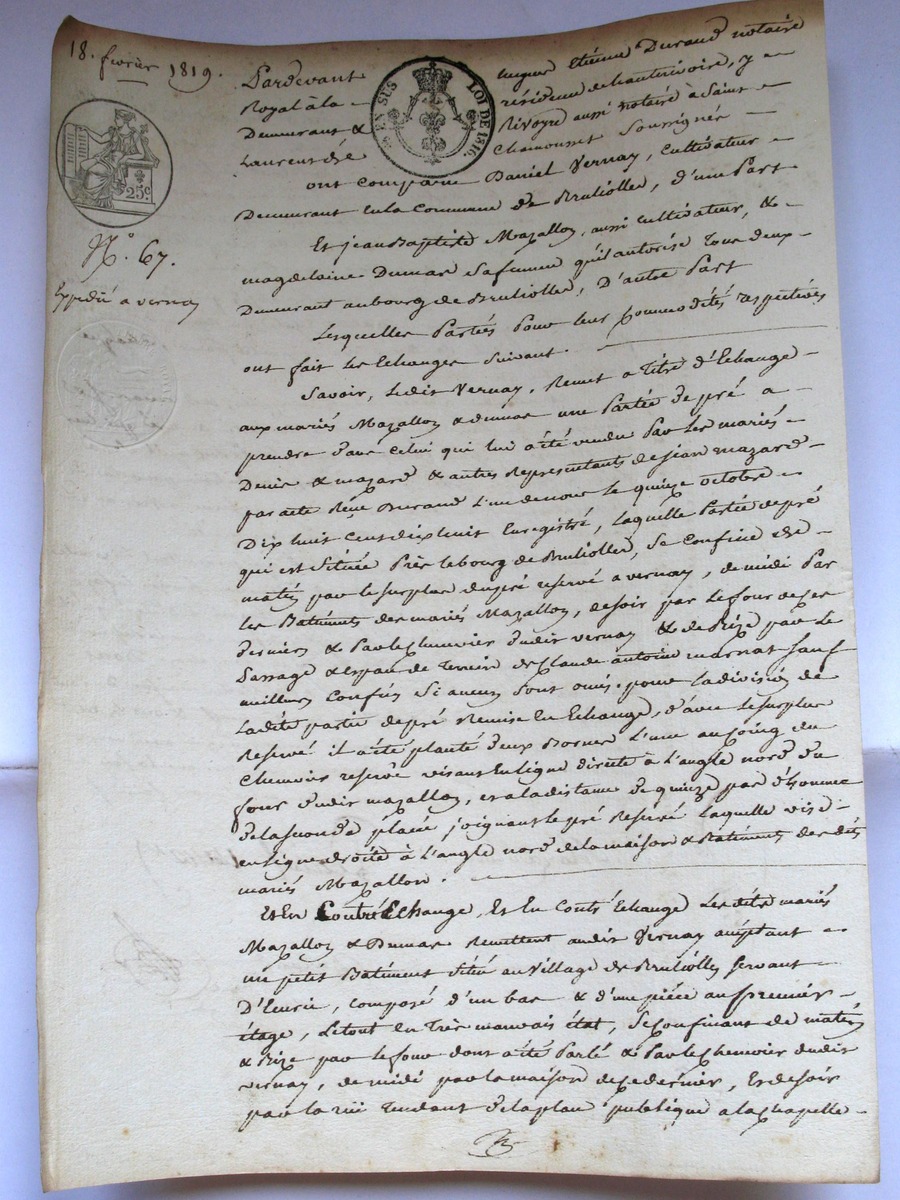 18. fevrier 1819.
Pardevant hugues Etienne Durand notaire
Royal à la résidence de hauterivoire, y
Demeurant & Rivoyre aussi notaire à Saint
Laurent de Chamousset Soussignés
EN SUS LOI DE 1816.
25c.
N° 67.
Expédié a vernay
ont comparu Daniel Vernay, Cultivateur
Demeurant en la Commune de Brulioles, d'une Part
Et jean Baptiste Mazallon, aussi cultivateur, &
magdelaine Dumas sa femme qu'il autorise tous deux
Demeurant au bourg de Brulioles, D'autre Part
Lesquelles Parties Pour leur commodités respectives
ont fait les Echanges suivant.
Savoir, Ledit Vernay, Remet a Titre d'Echange
aux mariés Mazallon & dumas une Partie de pré a
prendre dans Celui qui lui a été vendu Par Les mariés
Denis & mazard & autres Representants de jean mazard
par acte Reçu Durand L'un de nous le quinze octobre
Dix huit cent dix huit Enregistré, Laquelle Partie de pré
qui est située Près le bourg de Brulioles, Se Confine de
matin par le surplus du pré reservé a vernay, de midi Par
les Batiments des mariés Mazallon, de soir par le four de ces
derniers & Par le Chenevier dudit vernay & de Bize par le
Passage & espau de Terrein de Claude antoine marnas sauf
meilleurs confins si aucuns sont omis. pour la division de
La dite partie de pré Remise En Echange, d'avec le surplus
Reservé il a été planté deux Bornes L'une au joing du
Chenevier reservé visans En ligne directe à l'angle nord du
four dudit mazallon, et a la distance de quinze pas d'homme
de la seconde placée joignant le pré Reservé Laquelle vise
en ligne droite à L'angle nord de la maison & Batiments des dits
mariés Mazallon.
Et En Contre Echange, Et En Contre Echange Les dits mariés
Mazallon & Dumas Remettent audit Vernay acceptant
un petit Batiment situé au Village de Brulioles servant
D'Ecurie, composé d'un bas & d'une pièce au premier
étage, Le tout en très mauvais état, Se Confinant de matin
& Bize par le four dont a été Parlé & Par le Chenevier dudit
vernay, de midi par la maison de ce dernier, Et de soir
par la rue tendant de la place publique a la Chapelle